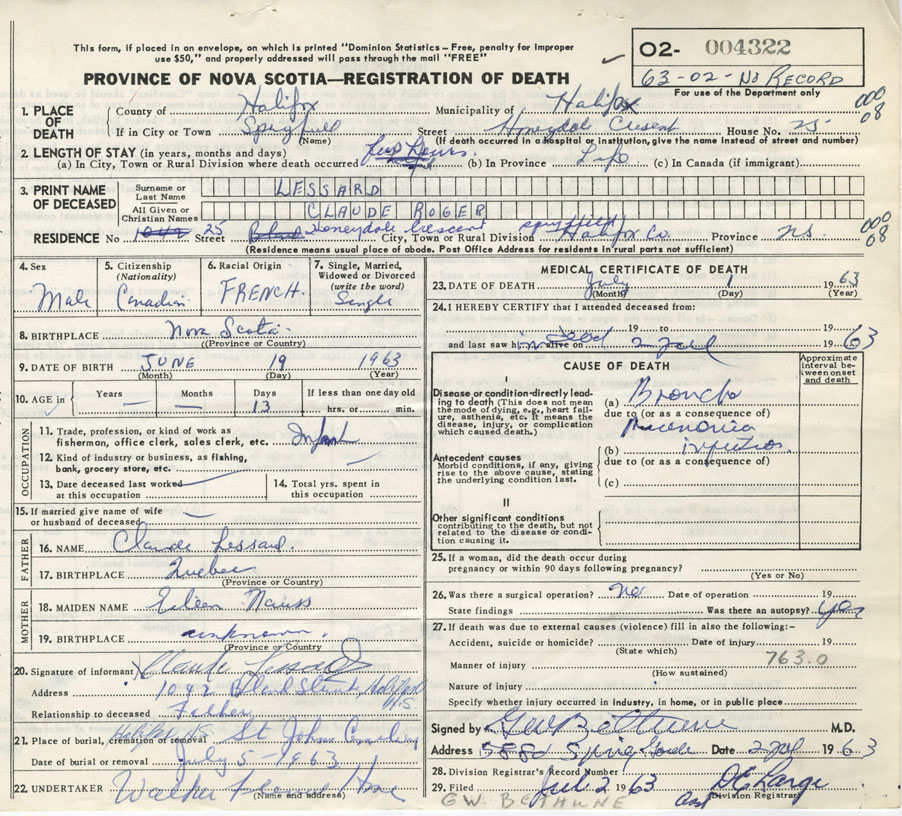 This form, if placed in an envelope, on which is printed "Dominion Statistics – Free, penalty for improper
use $50," and properly addressed will pass through the mail "FREE"
PROVINCE OF NOVA SCOTIA—REGISTRATION OF DEATH
O2- 004322
63-02-NO RECORD
For use of the Department only
1. PLACE OF DEATH
County of Halifax Municipality of Halifax 000 08
If in City or Town Spryfield Street Honeydale Cresent House No. 25
(Name) (If death occurred in a hospital or institution, give the name instead of street and number)
2. LENGTH OF STAY (in years, months and days)
(a) In City, Town or Rural Division where death occurred few hours. (b) In Province Life (c) In Canada (if immigrant)
3. PRINT NAME OF DECEASED
Surname or Last Name LESSARD
All Given or Christian Names CLAUDE ROGER
RESIDENCE No 1042 25 Street Bland Honeydale Crescent City, Town or Rural Division Spryfield Halifax Co. Province N.S. 000 08
(Residence means usual place of abode. Post Office Address for residents in rural parts not sufficient)
4. Sex Male
5. Citizenship (Nationality) Canadian
6. Racial Origin FRENCH.
7. Single, Married, Widowed or Divorced (write the word) Single
8. BIRTHPLACE Nova Scotia
(Province or Country)
9. DATE OF BIRTH JUNE 19 1963
(Month) (Day) (Year)
10. AGE in Years — Months — Days 13 If less than one day old hrs. or min.
OCCUPATION
11. Trade, profession, or kind of work as fisherman, office clerk, sales clerk, etc. Infant
12. Kind of industry or business, as fishing, bank, grocery store, etc. —
13. Date deceased last worked at this occupation
14. Total yrs. spent in this occupation
15. If married give name of wife or husband of deceased —
FATHER
16. NAME Claude Lessard.
17. BIRTHPLACE Quebec
(Province or Country)
MOTHER
18. MAIDEN NAME Eileen Nauss
19. BIRTHPLACE unknown.
(Province or Country)
20. Signature of informant Claude Lessard
Address 1042 Bland Street, Halifax N.S.
Relationship to deceased Father
21. Place of burial, cremation or removal Halifax N.S. St Johns Cemetery
Date of burial or removal July 5 - 1963
22. UNDERTAKER Walker Funeral Home
(Name and address)
MEDICAL CERTIFICATE OF DEATH
23. DATE OF DEATH July 1 1963
(Month) (Day) (Year)
24. I HEREBY CERTIFY that I attended deceased from:
19 to 19
and last saw him alive on dead 2 July 1963
CAUSE OF DEATH
Approximate interval between onset and death
I
Disease or condition directly leading to death (This does not mean the mode of dying, e.g., heart failure, asthenia, etc. It means the disease, injury, or complication which caused death.)
(a) Broncho
due to (or as a consequence of)
Pneumonia
Antecedent causes
Morbid conditions, if any, giving rise to the above cause, stating the underlying condition last.
(b) infection.
due to (or as a consequence of)
(c)
II
Other significant conditions
contributing to the death, but not related to the disease or condition causing it.
25. If a woman, did the death occur during pregnancy or within 90 days following pregnancy?
(Yes or No)
26. Was there a surgical operation? no Date of operation 19
State findings Was there an autopsy? yes
27. If death was due to external causes (violence) fill in also the following:–
Accident, suicide or homicide? Date of injury 19
(State which)
Manner of injury 763.0
(How sustained)
Nature of injury
Specify whether injury occurred in industry, in home, or in public place
Signed by GW Bethune M.D.
Address 5880 Spring Garden Date 2 July 1963
28. Division Registrar's Record Number
29. Filed Jul. 2 1963
Division Registrar
G.W. BETHUNE